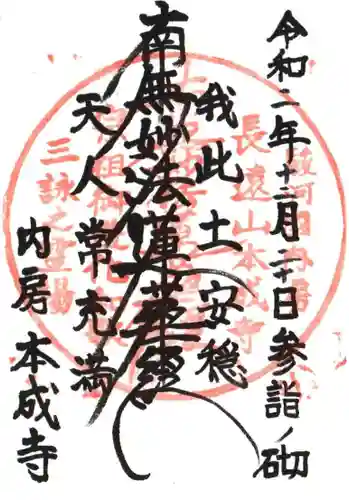 令和二年十二月二十日参詣ノ砌
我此土安穏
南無妙法蓮華経
天人常充満
内房 本成寺
長遠山本成寺
三詠之霊場